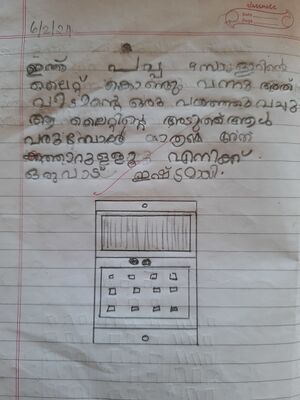 classmate
Date
Page
6/2/21
ഇന്ന് പപ്പ സോളാറിന്റെ
ലൈറ്റ് കൊണ്ടു വന്നു അത്
വീടിന്റെ ഒരു വശത്തു വച്ചു
ആ ലൈറ്റിന്റെ അടുത്ത് ആൾ
വരുമ്പോൾ മാത്രമേ അത്
കത്താറുള്ളൂ എനിക്ക്
ഒരുപാട് ഇഷ്ടമായി.